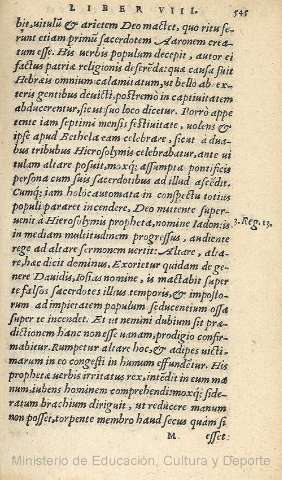 LIBER VIII. 545
bit, vitulũ & arietem Deo mactet, quo ritu fe-
runt etiam primũ sacerdotem Aaronem crea-
tum esse. His verbis populum decepit, autor ei
factus patriæ religionis deserẽdæ: quæ causa fuit
Hebræis omnium calamitatum, ut bello ab ex-
teris gentibus deuicti, postremò in captiuitatem
abducerentur, sicut suo loco dicetur. Porrò appe
tente iam septimi mensis festiuitate, uolens &
ipse apud Bethela eam celebrare, sicut à dua-
bus tribubus Hierosolymis celebrabatur, ante ui
tulam altare posuit, moxq; assumpta pontificis
persona cum suis sacerdotibus ad illud ascẽdit.
Cumq; iam holocautomata in conspectu totius
populi pararet incendere, Deo mittente super-
uenit à Hierosolymis propheta, nomine Iadon: is
3. Reg. 13.
in mediam multitudinem progressus, audiente
rege ad altare sermonem vertit: Altare, alta-
re, hæc dicit dominus. Exorietur quidam de ge-
nere Dauidis, Iosias nomine, is mactabit super
te falsos sacerdotes illius temporis, & impostō-
rum ad impietatem populum seducentium ossa
super te incendet. Et ut nemini dubium sit præ-
dictionem hanc non esse uanam, prodigio confir-
mabitur. Rumpetur altare hoc, & adipes victi-
marum in eo congesti in humum effundetur. His
prophetæ uerbis irritatus rex, intẽdit in eum ma
num, iubens hominem comprehendi: moxq; side-
ratum brachium diriguit, ut reducere manum
non posset, torpente membro haud secus quàm si
M. esset
Ministerio de Educación, Cultura y Deporte